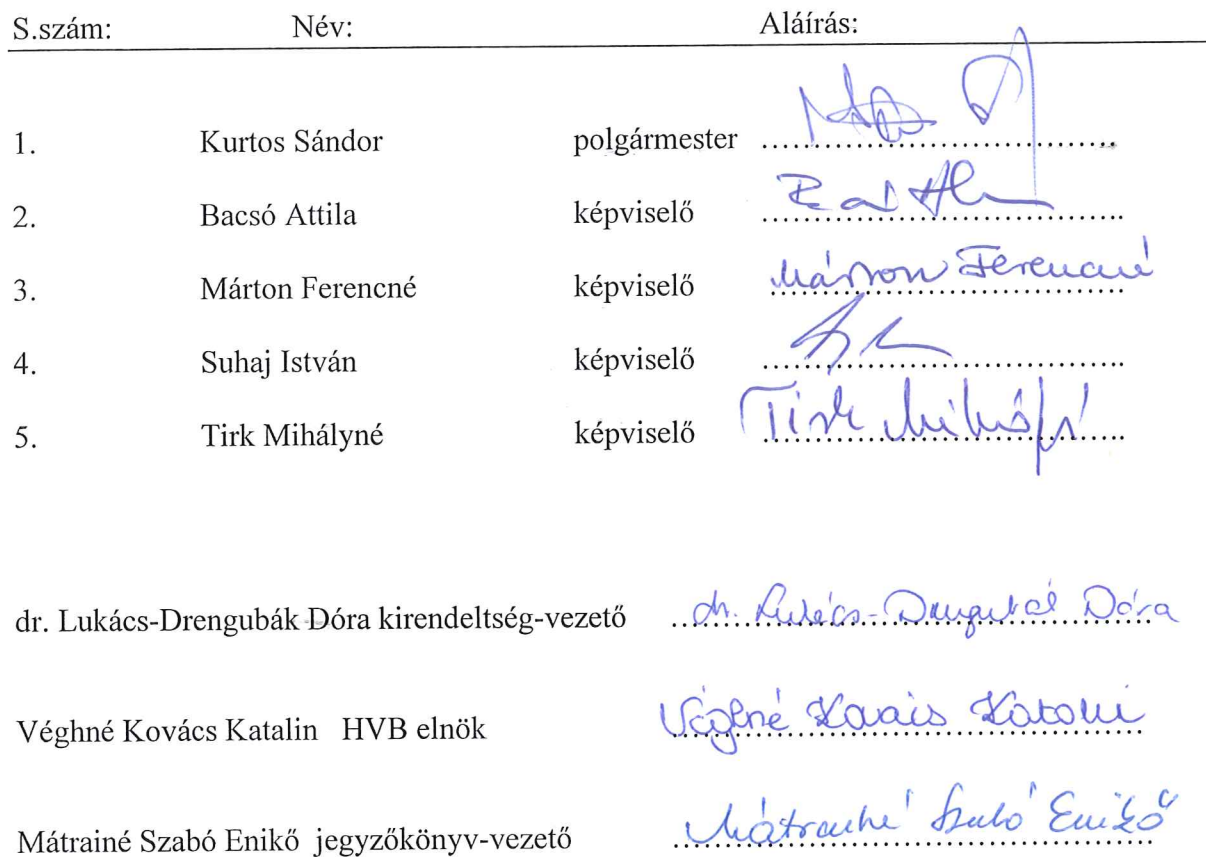 S.szám: Név: Aláírás:
1. Kurtos Sándor polgármester ........................................
2. Bacsó Attila képviselő ........................................
3. Márton Ferencné képviselő Márton Ferencné
4. Suhaj István képviselő ........................................
5. Tirk Mihályné képviselő Tirk Mihályné
dr. Lukács-Drengubák Dóra kirendeltség-vezető dr. Lukács-Drengubák Dóra
Véghné Kovács Katalin HVB elnök Véghné Kovács Katalin
Mátrainé Szabó Enikő jegyzőkönyv-vezető Mátrainé Szabó Enikő